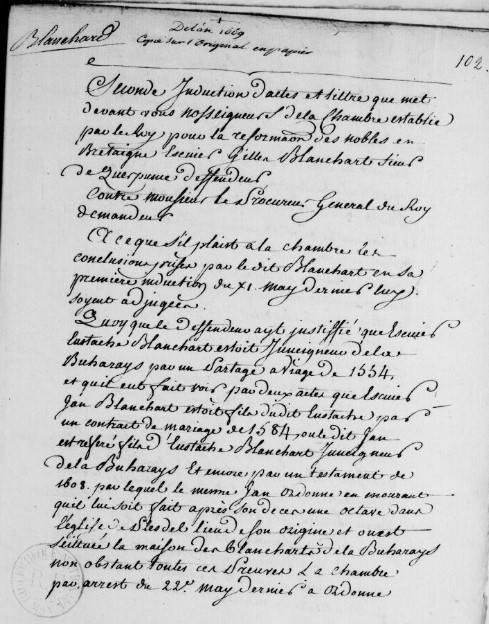 Blanchard
De l'an 1669
Copie sur l'original en papier
102.
Seconde Induction d'actes et tiltre que met
devant vous nosseigneurs de la Chambre establie
par le Roy pour la reformaon des nobles en
Bretaigne Escuier Gilles Blanchart sieur
de Querpume deffendeur
Contre monsieur le Procureur General du Roy
demandeur
A ce que s'il plaist à la chambre les
conclusions prises par le dit Blanchart en sa
première induction du XI. may dernier luy
soyent adjugées.
Quoy que le deffendeur ayt justiffié que Escuier
Eustache Blanchart estoit Juveigneur de la
Buharays par un Partage a viage de 1554,
et quil eut fait voir par deux actes que Escuier
Jan Blanchart estoit fils dudit Eustache par
un contrat de mariage de 1584, ou le dit Jan
est referé fils d'Eustache Blanchart Juveigneur
de la Buharays Et encore par un testament de
1608. par lequel le mesme Jan ordonne en mourant
quil lui soit fait après son deces une octave dans
l'églize de lieu de son origine et ou est
scittuée la maison des Blancharts de la Buharays
non obstant toutes ces Preuves La chambre
par arrest du 22e may dernier a ordonné